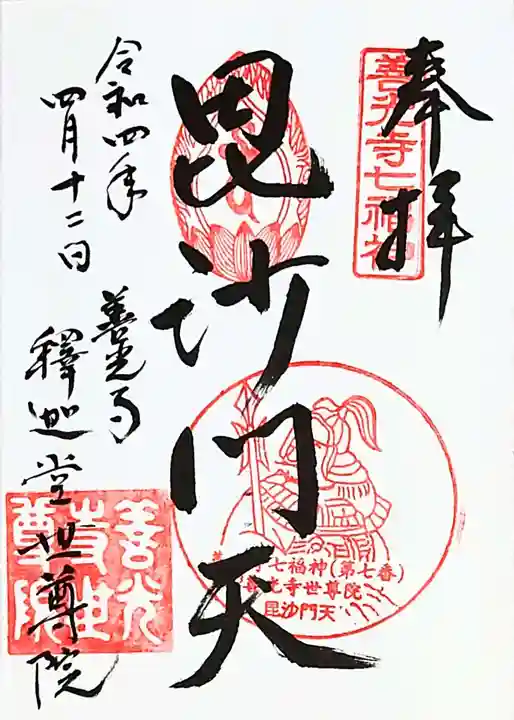 奉拝
善光寺七福神
毘沙門天
令和四年
四月十二日
善光寺
釋迦堂世尊院
七福神(第七番)
善光寺世尊院
毘沙門天
善光
寺世
尊院